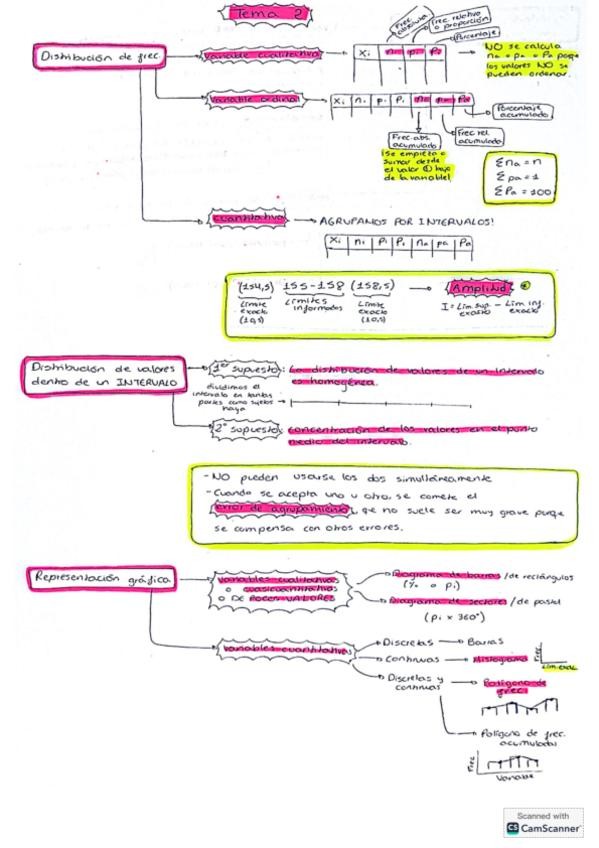 Tema 2
Distribución de frec
variable cualitativa
Xi ni pi Pi
Frec. absoluta
Frec. relativa o proporción
Porcentaje
NO se calcula
na = pa = Pa porque
los valores NO se
pueden ordenar.
variable ordinal
Xi ni pi Pi na pa Pa
Porcentaje
acumulado
Frec. abs.
acumulado
Frec rel.
acumulado
(se empieza a
sumar desde
el valor ⊕ bajo
de la variable)
Σ na = n
Σ pa = 1
Σ Pa = 100
cuantitativa
AGRUPAMOS POR INTERVALOS!
Xi ni pi Pi na pa Pa
(154,5) 155-158 (158,5)
Límite
exacto
(±0,5)
Límites
informados
Límite
exacto
(±0,5)
Amplitud
I = Lím. sup. exacto - Lím inf. exacto
Distribución de valores
dentro de un INTERVALO
1er supuesto: La distribución de valores de un intervalo
es homogénea.
dividimos el
intervalo en tantas
partes como sujetos
haya
2º supuesto: concentración de los valores en el punto
medio del intervalo.
- NO pueden usarse los dos simultáneamente
- Cuando se acepta uno u otro, se comete el
error de agrupamiento, que no suele ser muy grave porque
se compensa con otros errores.
Representación gráfica
variables cualitativas
o cuasicuantitativas
o DE POCOS VALORES
Diagrama de barras / de rectángulos
(ni o pi)
Diagrama de sectores / de pastel
(pi x 360°)
variables cuantitativas
Discretas → Barras
Continuas → Histograma
Frec
Lím. exac.
Discretas y
continuas
Polígono de
frec.
Polígono de frec.
acumuladas
Frec
Variable
Scanned with
CS CamScanner